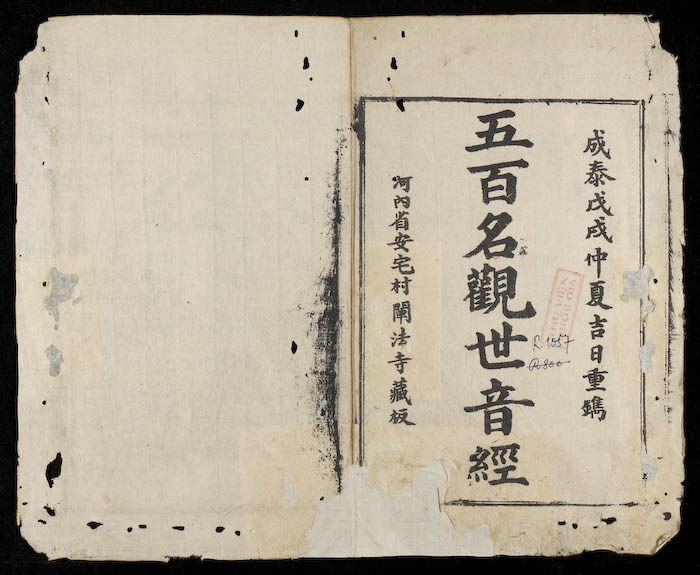 成泰戊戌仲夏吉日重鐫
五百名觀世音經
河内省安宅村闡法寺藏板
THƯ VIỆN
QUỐC GIA
R.1057
R 800